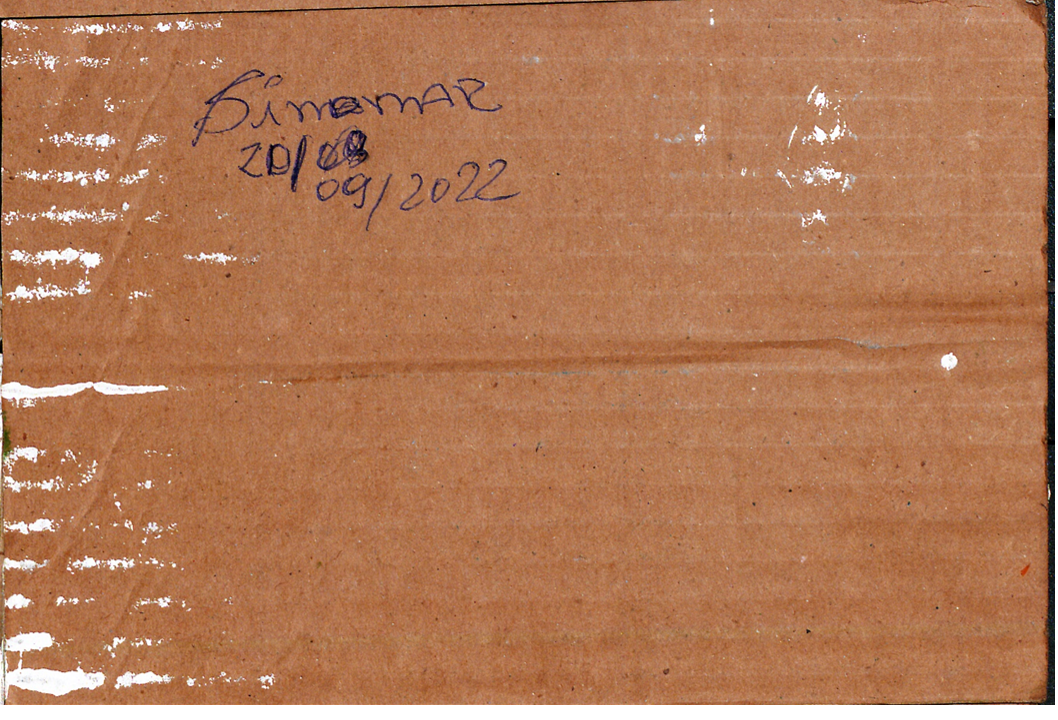 Simomar
20/08
09/2022